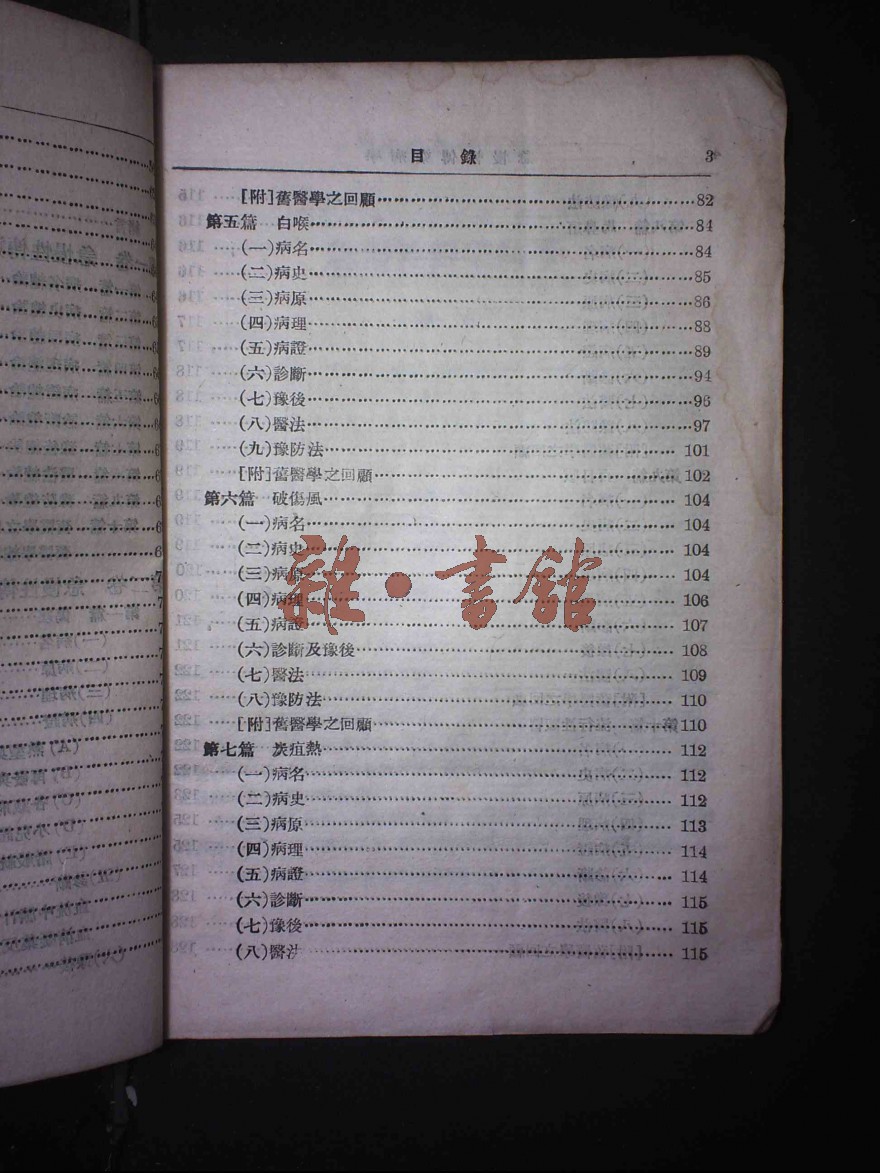 目錄 3
[附]舊醫學之回顧……82
第五篇 白喉……84
(一)病名……84
(二)病史……85
(三)病原……86
(四)病理……88
(五)病證……89
(六)診斷……94
(七)豫後……96
(八)醫法……97
(九)豫防法……101
[附]舊醫學之回顧……102
第六篇 破傷風……104
(一)病名……104
(二)病史……104
(三)病原……104
(四)病理……106
(五)病證……107
(六)診斷及豫後……108
(七)醫法……109
(八)豫防法……110
[附]舊醫學之回顧……110
第七篇 炭疽熱……112
(一)病名……112
(二)病史……112
(三)病原……113
(四)病理……114
(五)病證……114
(六)診斷……115
(七)豫後……115
(八)醫法……115
雜·書館